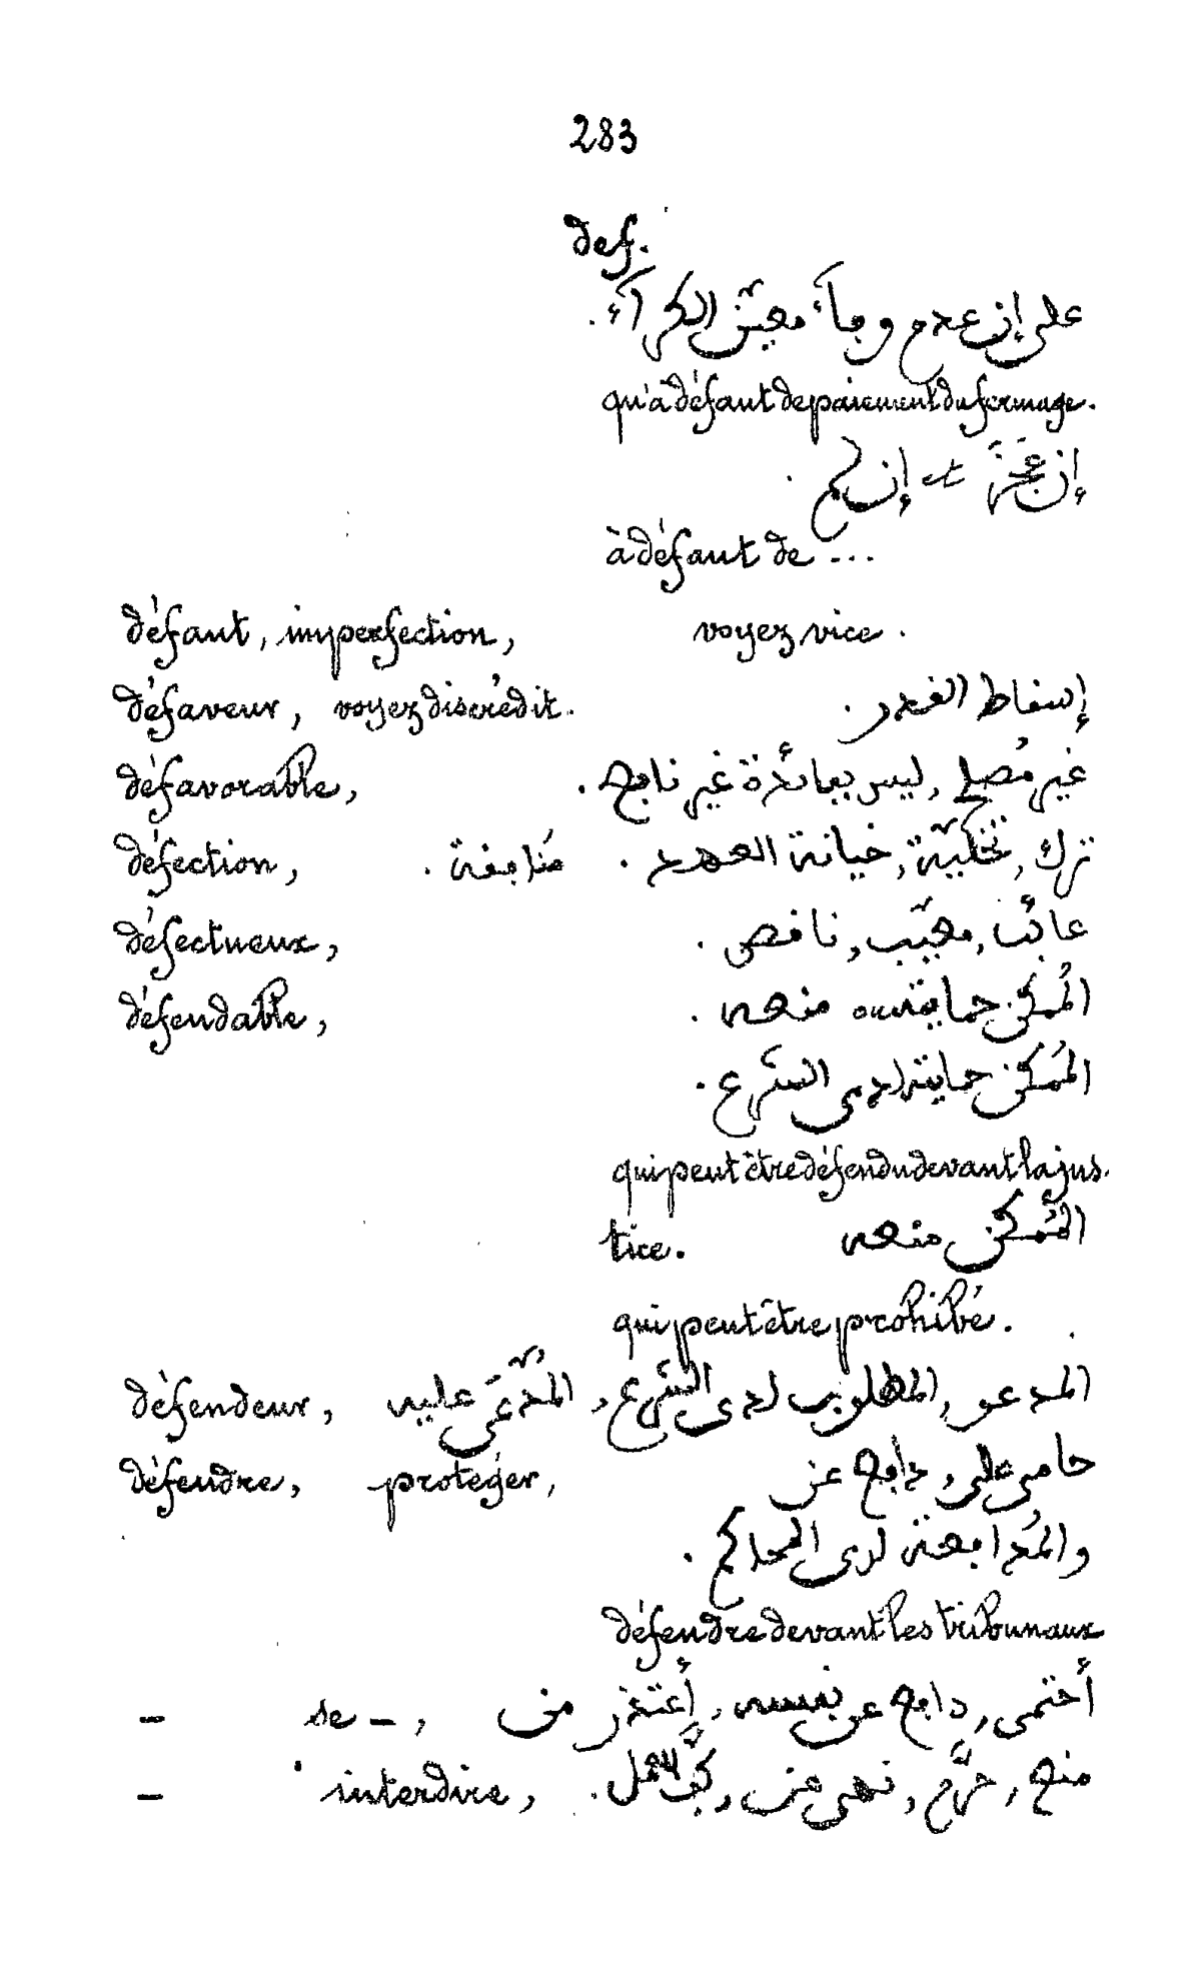 283
def.
على إن عدم وفاء معيّن الكراء.
qu'à défaut de paiement du fermage.
إن عَجَزَ et إن لم .
à défaut de ...
défaut, imperfection, voyez vice.
défaveur, voyez discrédit. إسقاط القدر.
défavorable, غير مُصلح, ليس بفائدة غير نافع.
défection, ترك, تخلّية, خيانة العهد.
défectueux, عائب, معيّب, ناقص.
défendable, المُمكن حمايته ou منعه.
المُمكن حمايته لدى الشّرع.
qui peut être défendu devant la jus-
tice. المُمكن منعه
qui peut être prohibé.
défendeur, المدعو, المطلوب لدى الشّرع, المدّعى عليه
défendre, protéger, حامى على, دافع عن
والمُدافعة لدى المحاكم.
défendre devant les tribunaux
— se —, أحتمى, دافع عن نفسه, أعتذر من
— interdire, منع, حرّم, نهى عن,